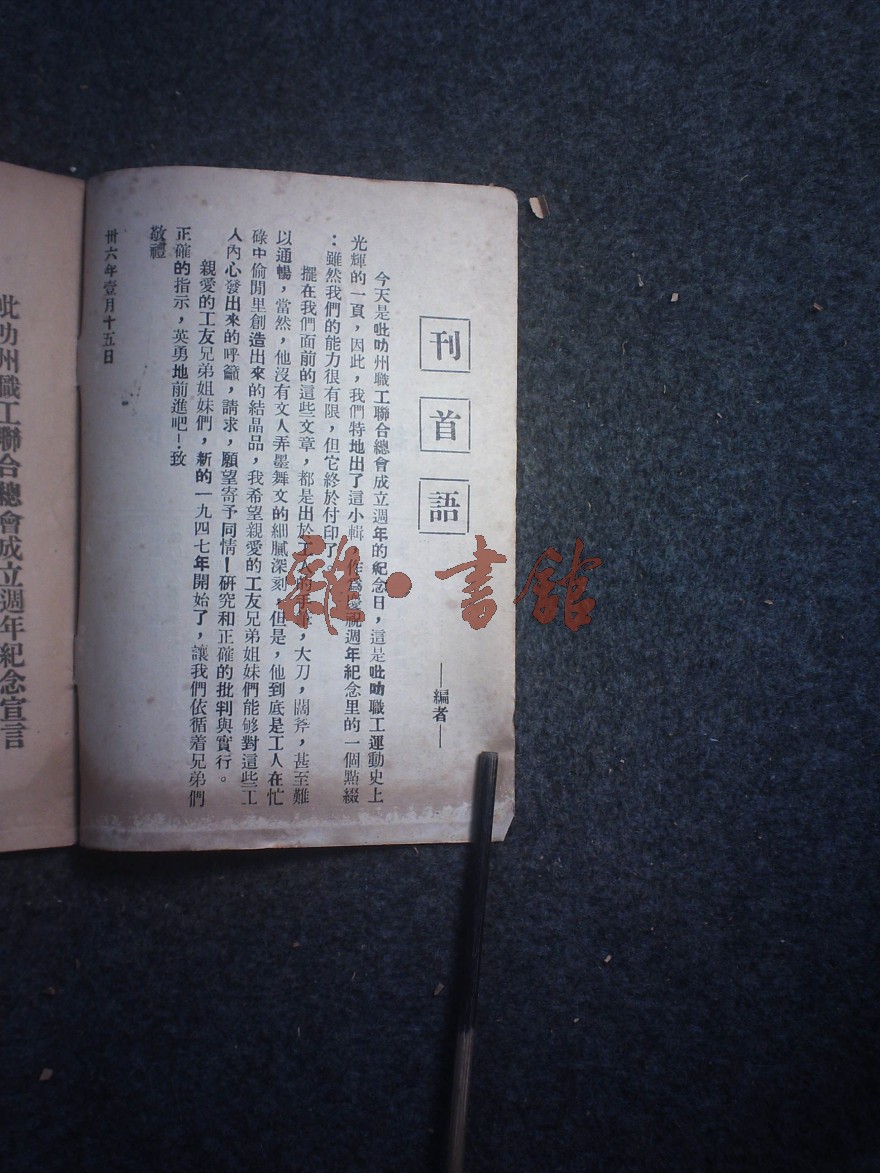 刊首語
——編者——
今天是吡叻州職工聯合總會成立週年的紀念日，這是吡叻職工運動史上
光輝的一頁，因此，我們特地出了這小輯，作爲慶祝週年紀念里的一個點綴
：雖然我們的能力很有限，但它終於付印了
擺在我們面前的這些文章，都是出於工人的手，大刀，闊斧，甚至難
以通暢，當然，他沒有文人弄墨舞文的細膩深刻，但是，他到底是工人在忙
碌中偷閒里創造出來的結晶品，我希望親愛的工友兄弟姐妹們能够對這些工
人內心發出來的呼籲，請求，願望寄予同情！研究和正確的批判與實行。
親愛的工友兄弟姐妹們，新的一九四七年開始了，讓我們依循着兄弟們
正確的指示，英勇地前進吧！致
敬禮
卅六年壹月十五日
吡叻州職工聯合總會成立週年紀念宣言
雜·書館